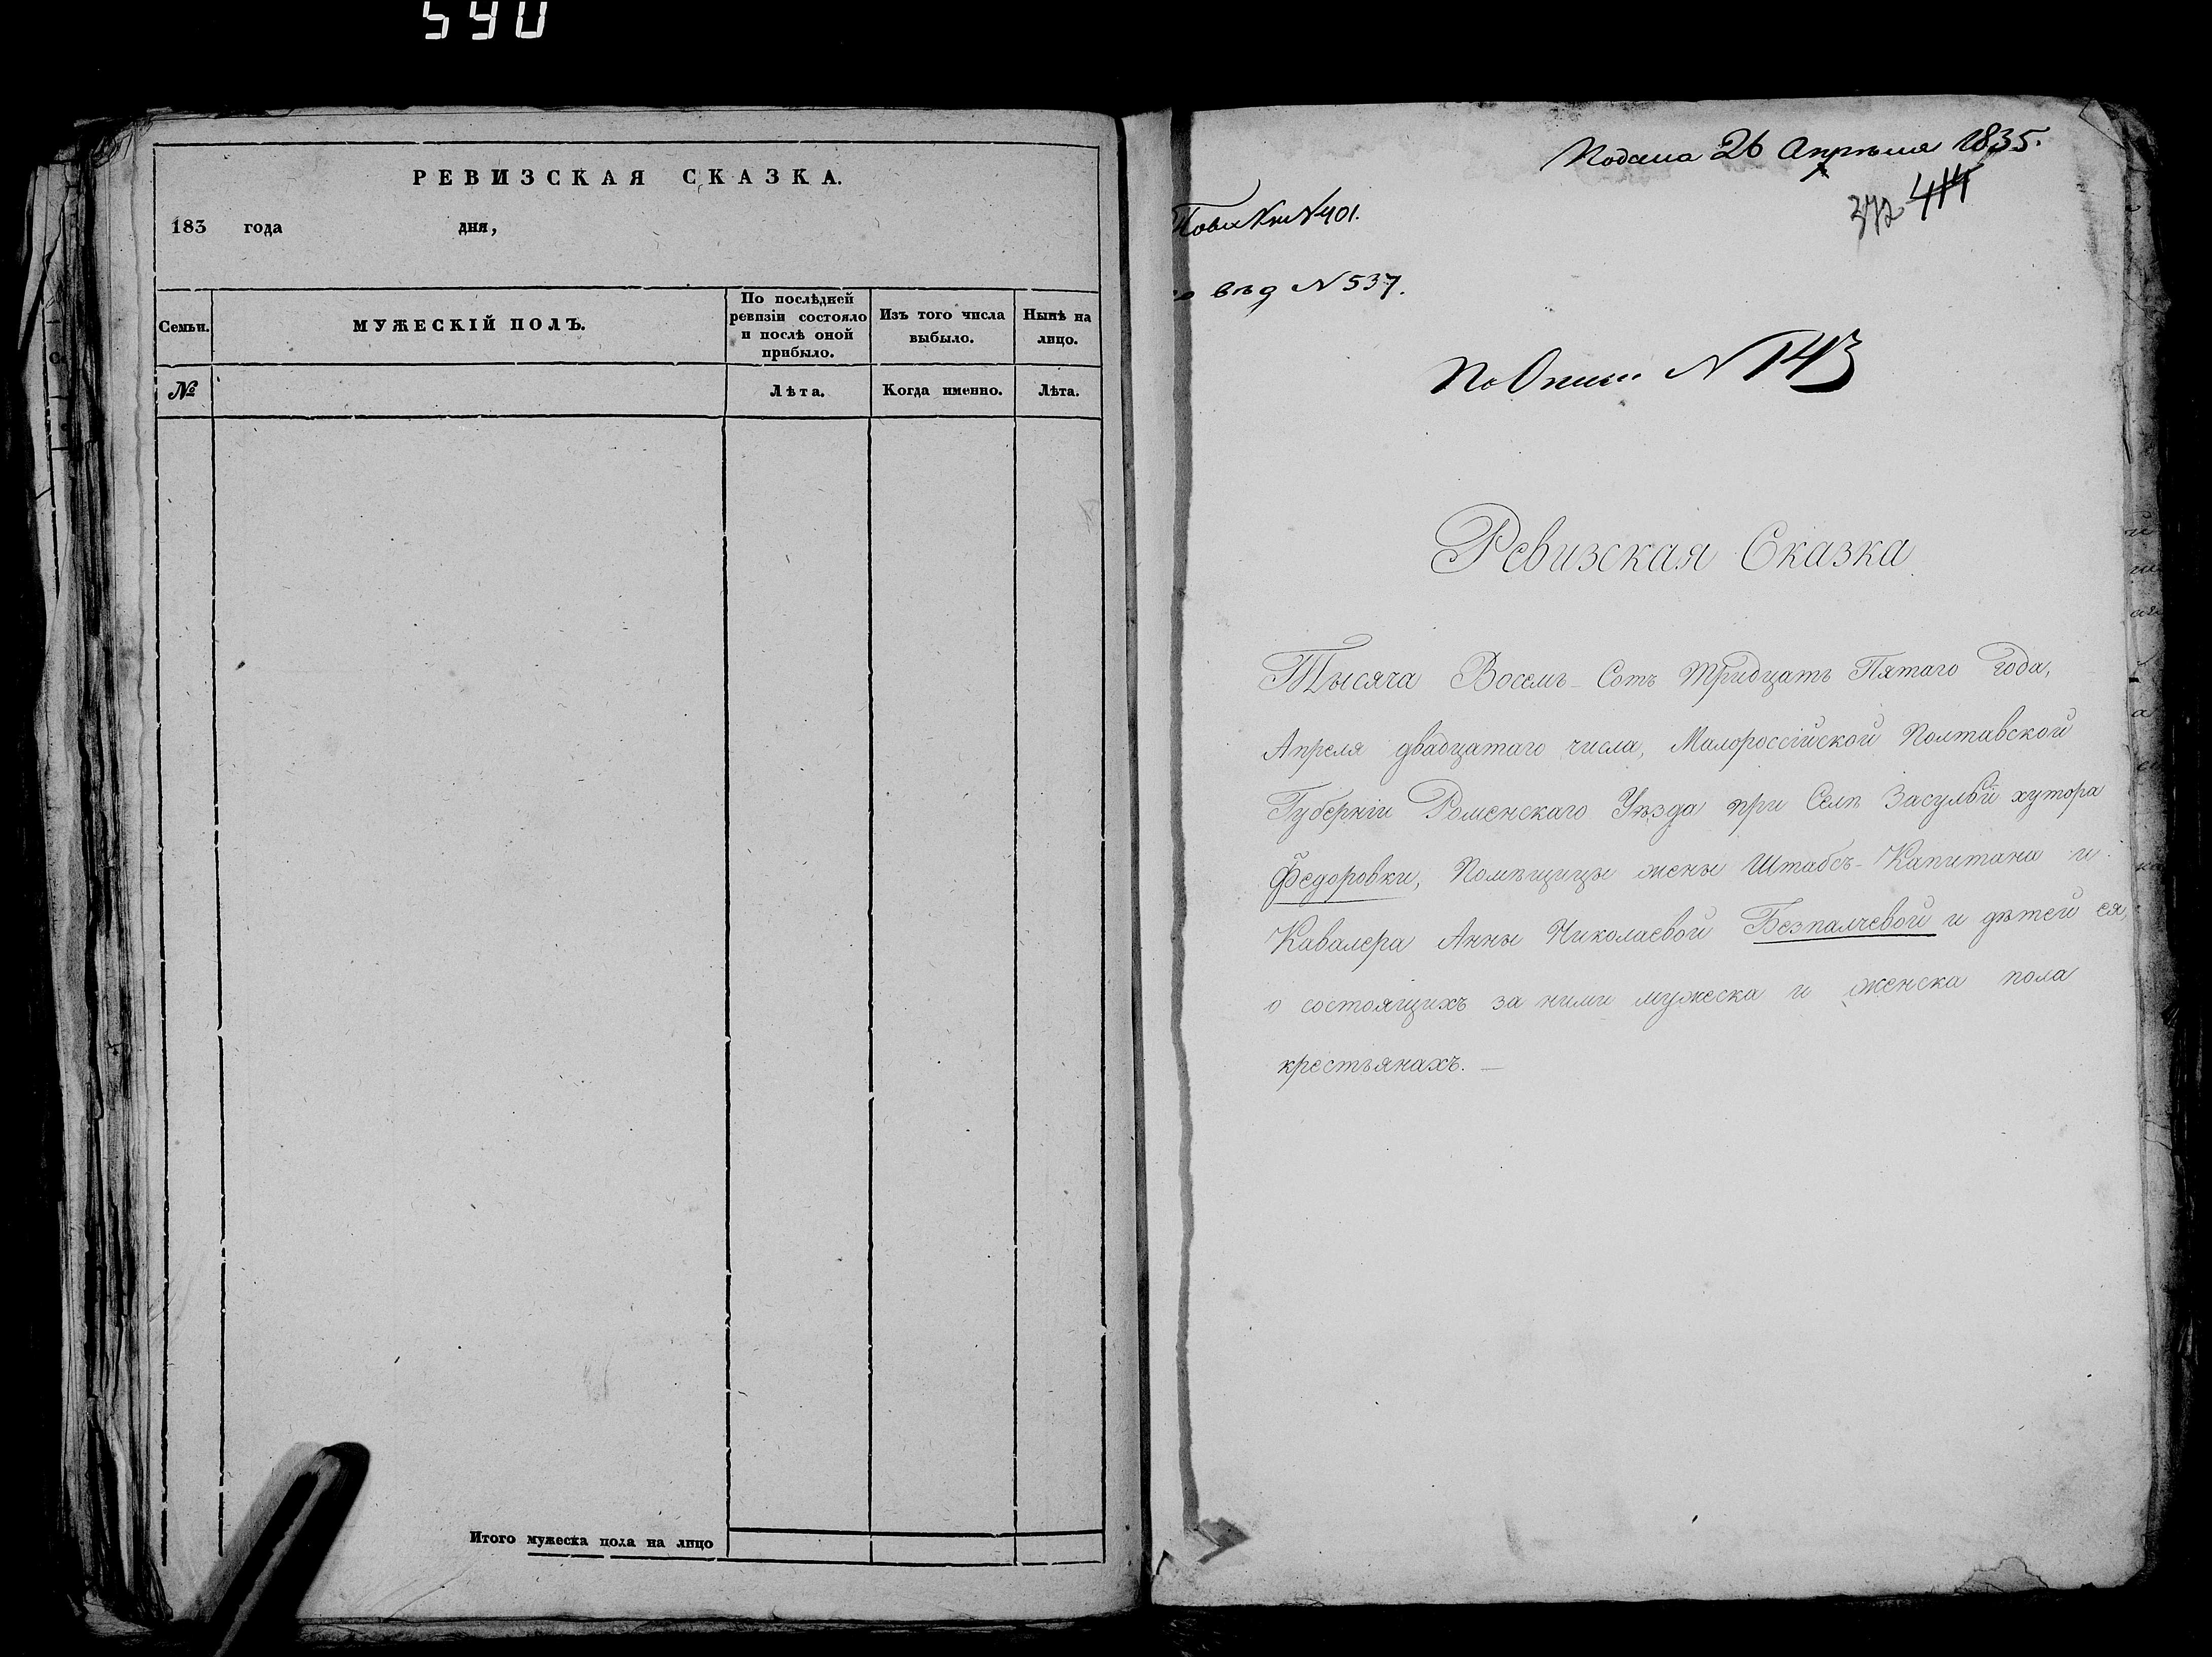 590
РЕВИЗСКАЯ СКАЗКА.
183 года дня,
Семьи.
МУЖЕСКІЙ ПОЛЪ.
По послѣдней
ревизіи состояло
и послѣ оной
прибыло.
Изъ того числа
выбыло.
Нынѣ на
лицо.
№
Лѣта.
Когда именно.
Лѣта.
Итого мужеска пола на лицо
Подана 26 Апрѣля 1835.
372 414
N 401.
вѣд N 537.
По Описи N 143
Ревизская Сказка
Тысяча Восемь Сотъ Тридцать Пятаго года,
Апреля двадцатаго числа, Малороссійской Полтавской
Губерніи Роменскаго Уѣзда при Селѣ Засульи хутора
Федоровки, Помѣщицы жены Штабсъ-Капитана и
Кавалера Анны Николаевой Безпалчевой и дѣтей ея,
о состоящихъ за ними мужеска и женска пола
крестьянахъ. —